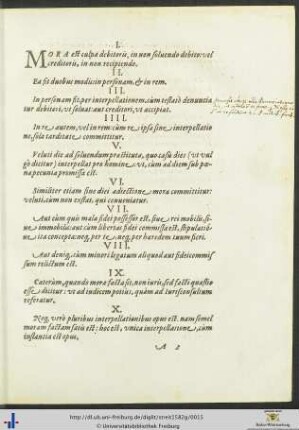 I.
MORA est culpa debitoris, in non soluendo debito: vel
creditoris, in non recipiendo.
II.
Ea fit duobus modis: in personam, & in rem.
III.
In personam fit, per interpellationem: cùm testatò denuntia
tur debitori, vt soluat: aut creditori, vt accipiat.
IIII.
In re autem, vel in rem cùm re ipsa sine interpellatio
ne, sola tarditate committitur.
V.
Veluti die ad soluendum præstituta, quo casu dies (vt vul
gò dicitur) interpellat pro homine: vt, cùm ad diem sub pœ
na pecunia promissa est.
VI.
Similiter etiam sine diei adiectione mora committitur:
veluti, cùm non extat, qui conueniatur.
VII.
Aut cùm quis mala fidei possessor est, siue rei mobilis, si-
ue immobilis: aut cùm libertas fidei commissa est, stipulatio-
ne ita concepta: neq, per te neq, per haredem tuum fieri.
VIII.
Aut deniq, cùm minori legatum aliquod aut fideicommis
sum relictum est.
IX.
Caterùm, quando mora facta sit, non iuris, sed facti quæstio
esse dicitur: vt ad iudicem potius, quàm ad iurisconsultum
referatur.
X.
Neq, verò pluribus interpellationibus opus est. nam semel
moram factam satis est: hoc est, vnica interpellatione, cùm
instantia est opus,
A 2
http://dl.ub.uni-freiburg.de/diglit/streit1582g/0015
© Universitätsbibliothek Freiburg
Baden-Württemberg